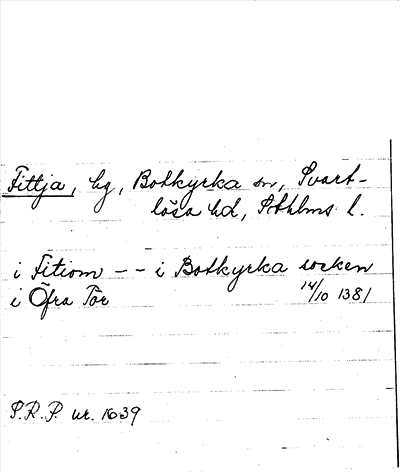 Fittja, hg, Botkyrka sn, Svart-
lösa hd, Sthlms l.
i Fitiom -- i Botkyrka socken
i Öfra Tör 14/10 1381
S.R.P. nr. 1639